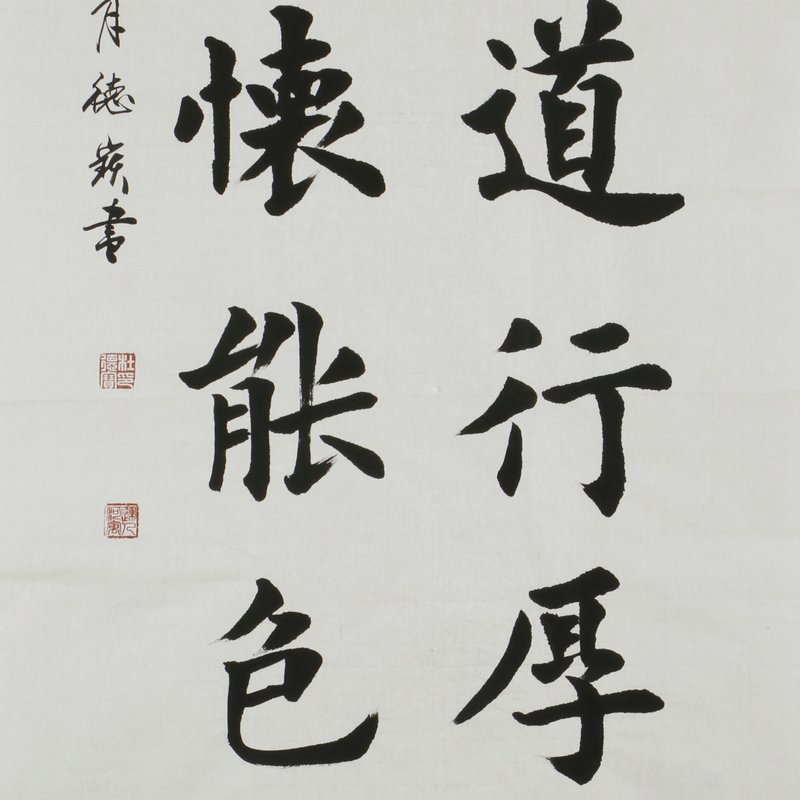 道行厚
懐能色
月德書